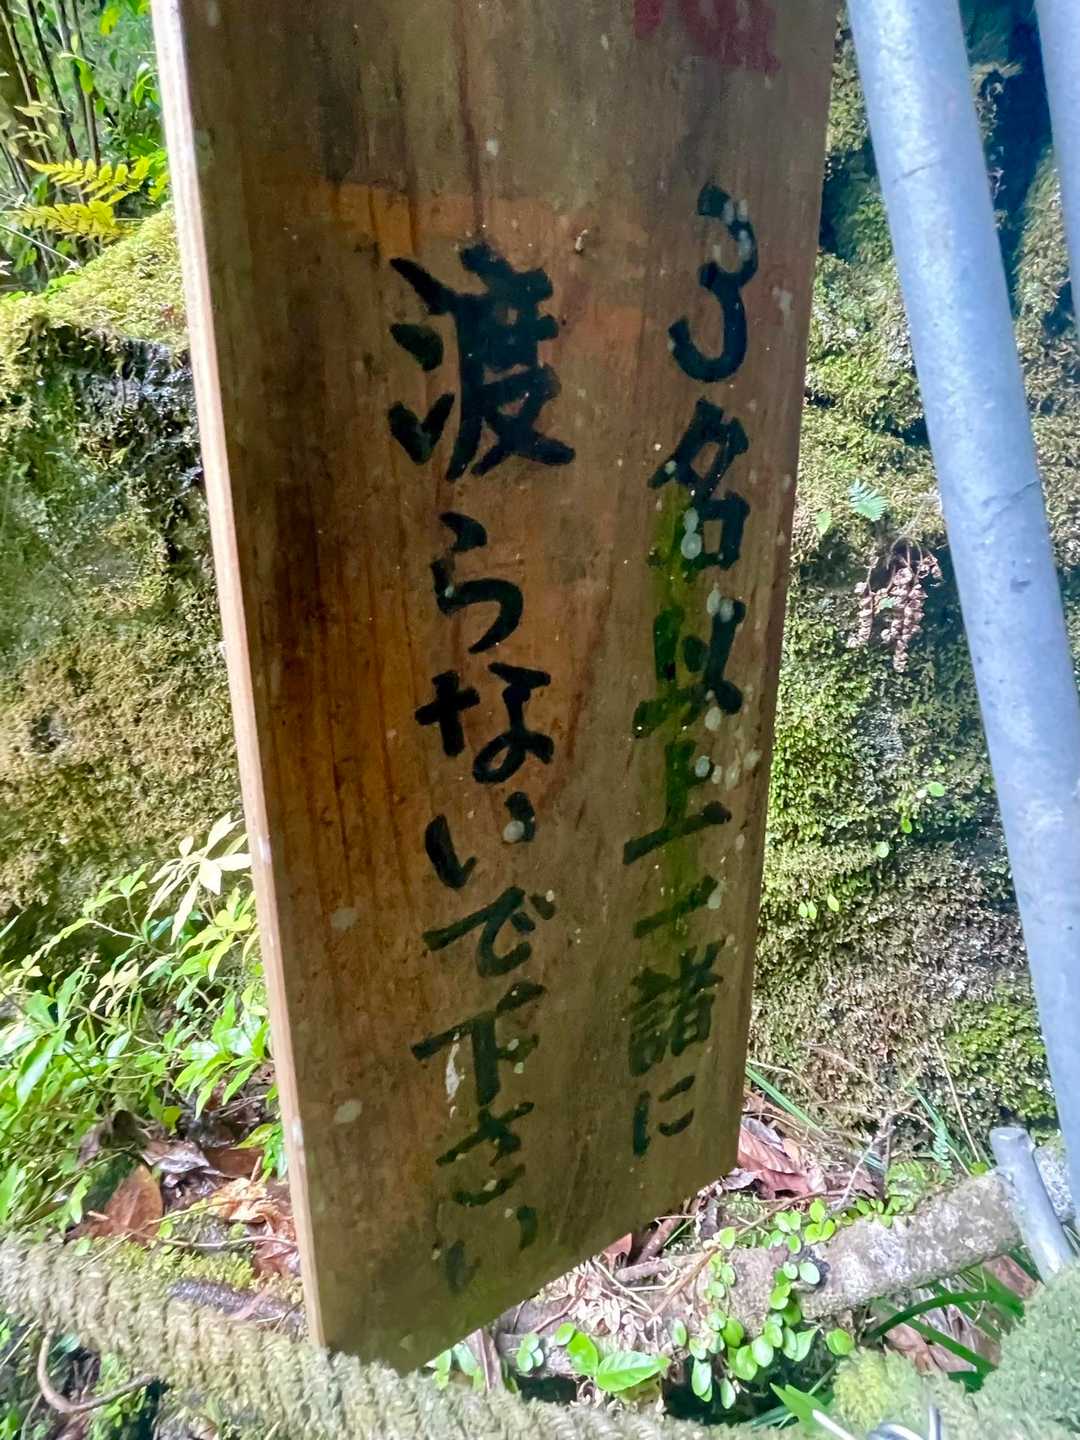 3名以上一諸に
渡らないで下さい